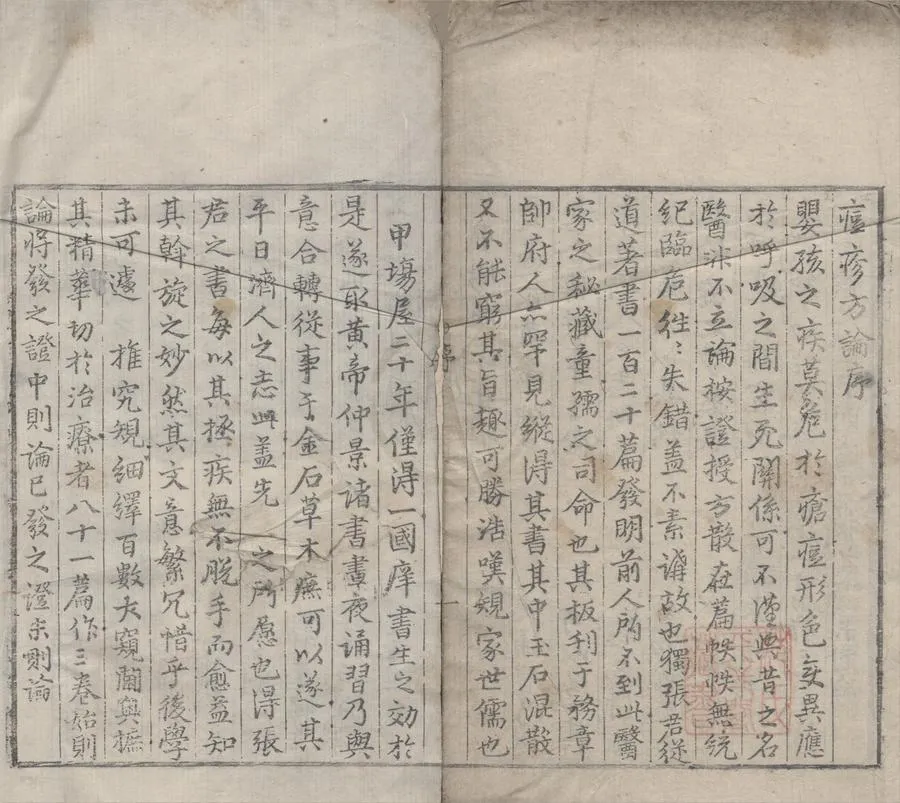 痘疹方論序
嬰孩之疾莫危於瘡痘形色变異應
於呼吸之間生死關係可不謹與昔之名
醫非不立論按證授方散在篇帙帙無統
紀臨危徃〻失錯盖不素講故也獨張君從
道著書一百二十篇發明前人所不到此醫
家之秘藏童孺之司命也其板利于務章
帥府人亦罕見縱得其書其中玉石混散
又不能窮其旨趣可勝浩嘆規家世儒也
序 一
甲塲屋二十年僅得一國庠書生之効於
是遂取黄帝仲景諸書晝夜誦習乃與
意合轉從事于金石草木庶可以遂其
平日濟人之志此盖先 之所愿也得張
君之書每以其拯疾無不脱手而愈益知
其斡旋之妙然其文意繁冗惜乎後學
未可遽 推究規細繹百數大窺閫奥摭
其精華切於治療者八十一篇作三卷始則
論將發之證中則論已發之證末則論